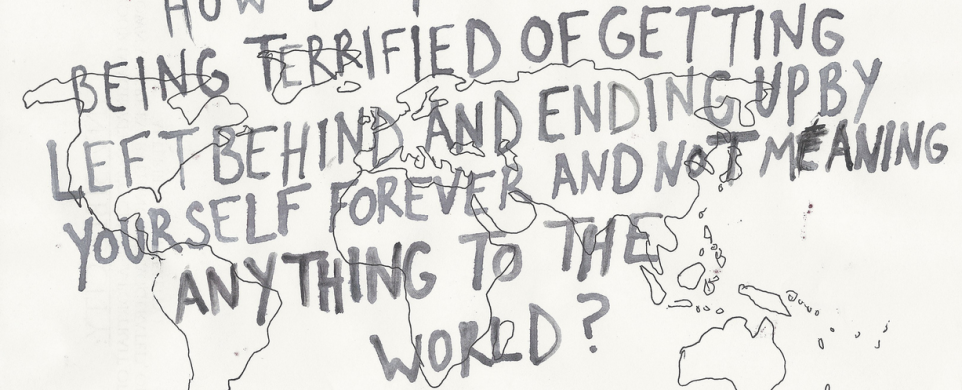 HOW
BEING TERRIFIED OF GETTING
LEFT BEHIND AND ENDING UP BY
YOURSELF FOREVER AND NOT MEANING
ANYTHING TO THE
WORLD?